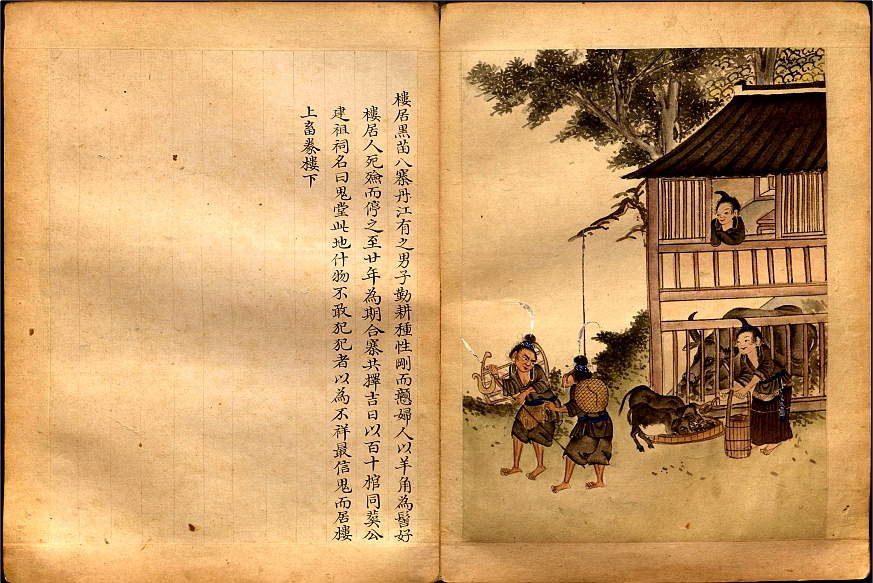 樓居黑苗八寨丹江有之男子勤耕種性剛而戇婦人以羊角為髻好
樓居人死殮而停之至廿年為期合寨共擇吉日以百十棺同葬公
建祖祠名曰鬼堂此地什物不敢犯犯者以為不祥最信鬼而居樓
上畜豢樓下